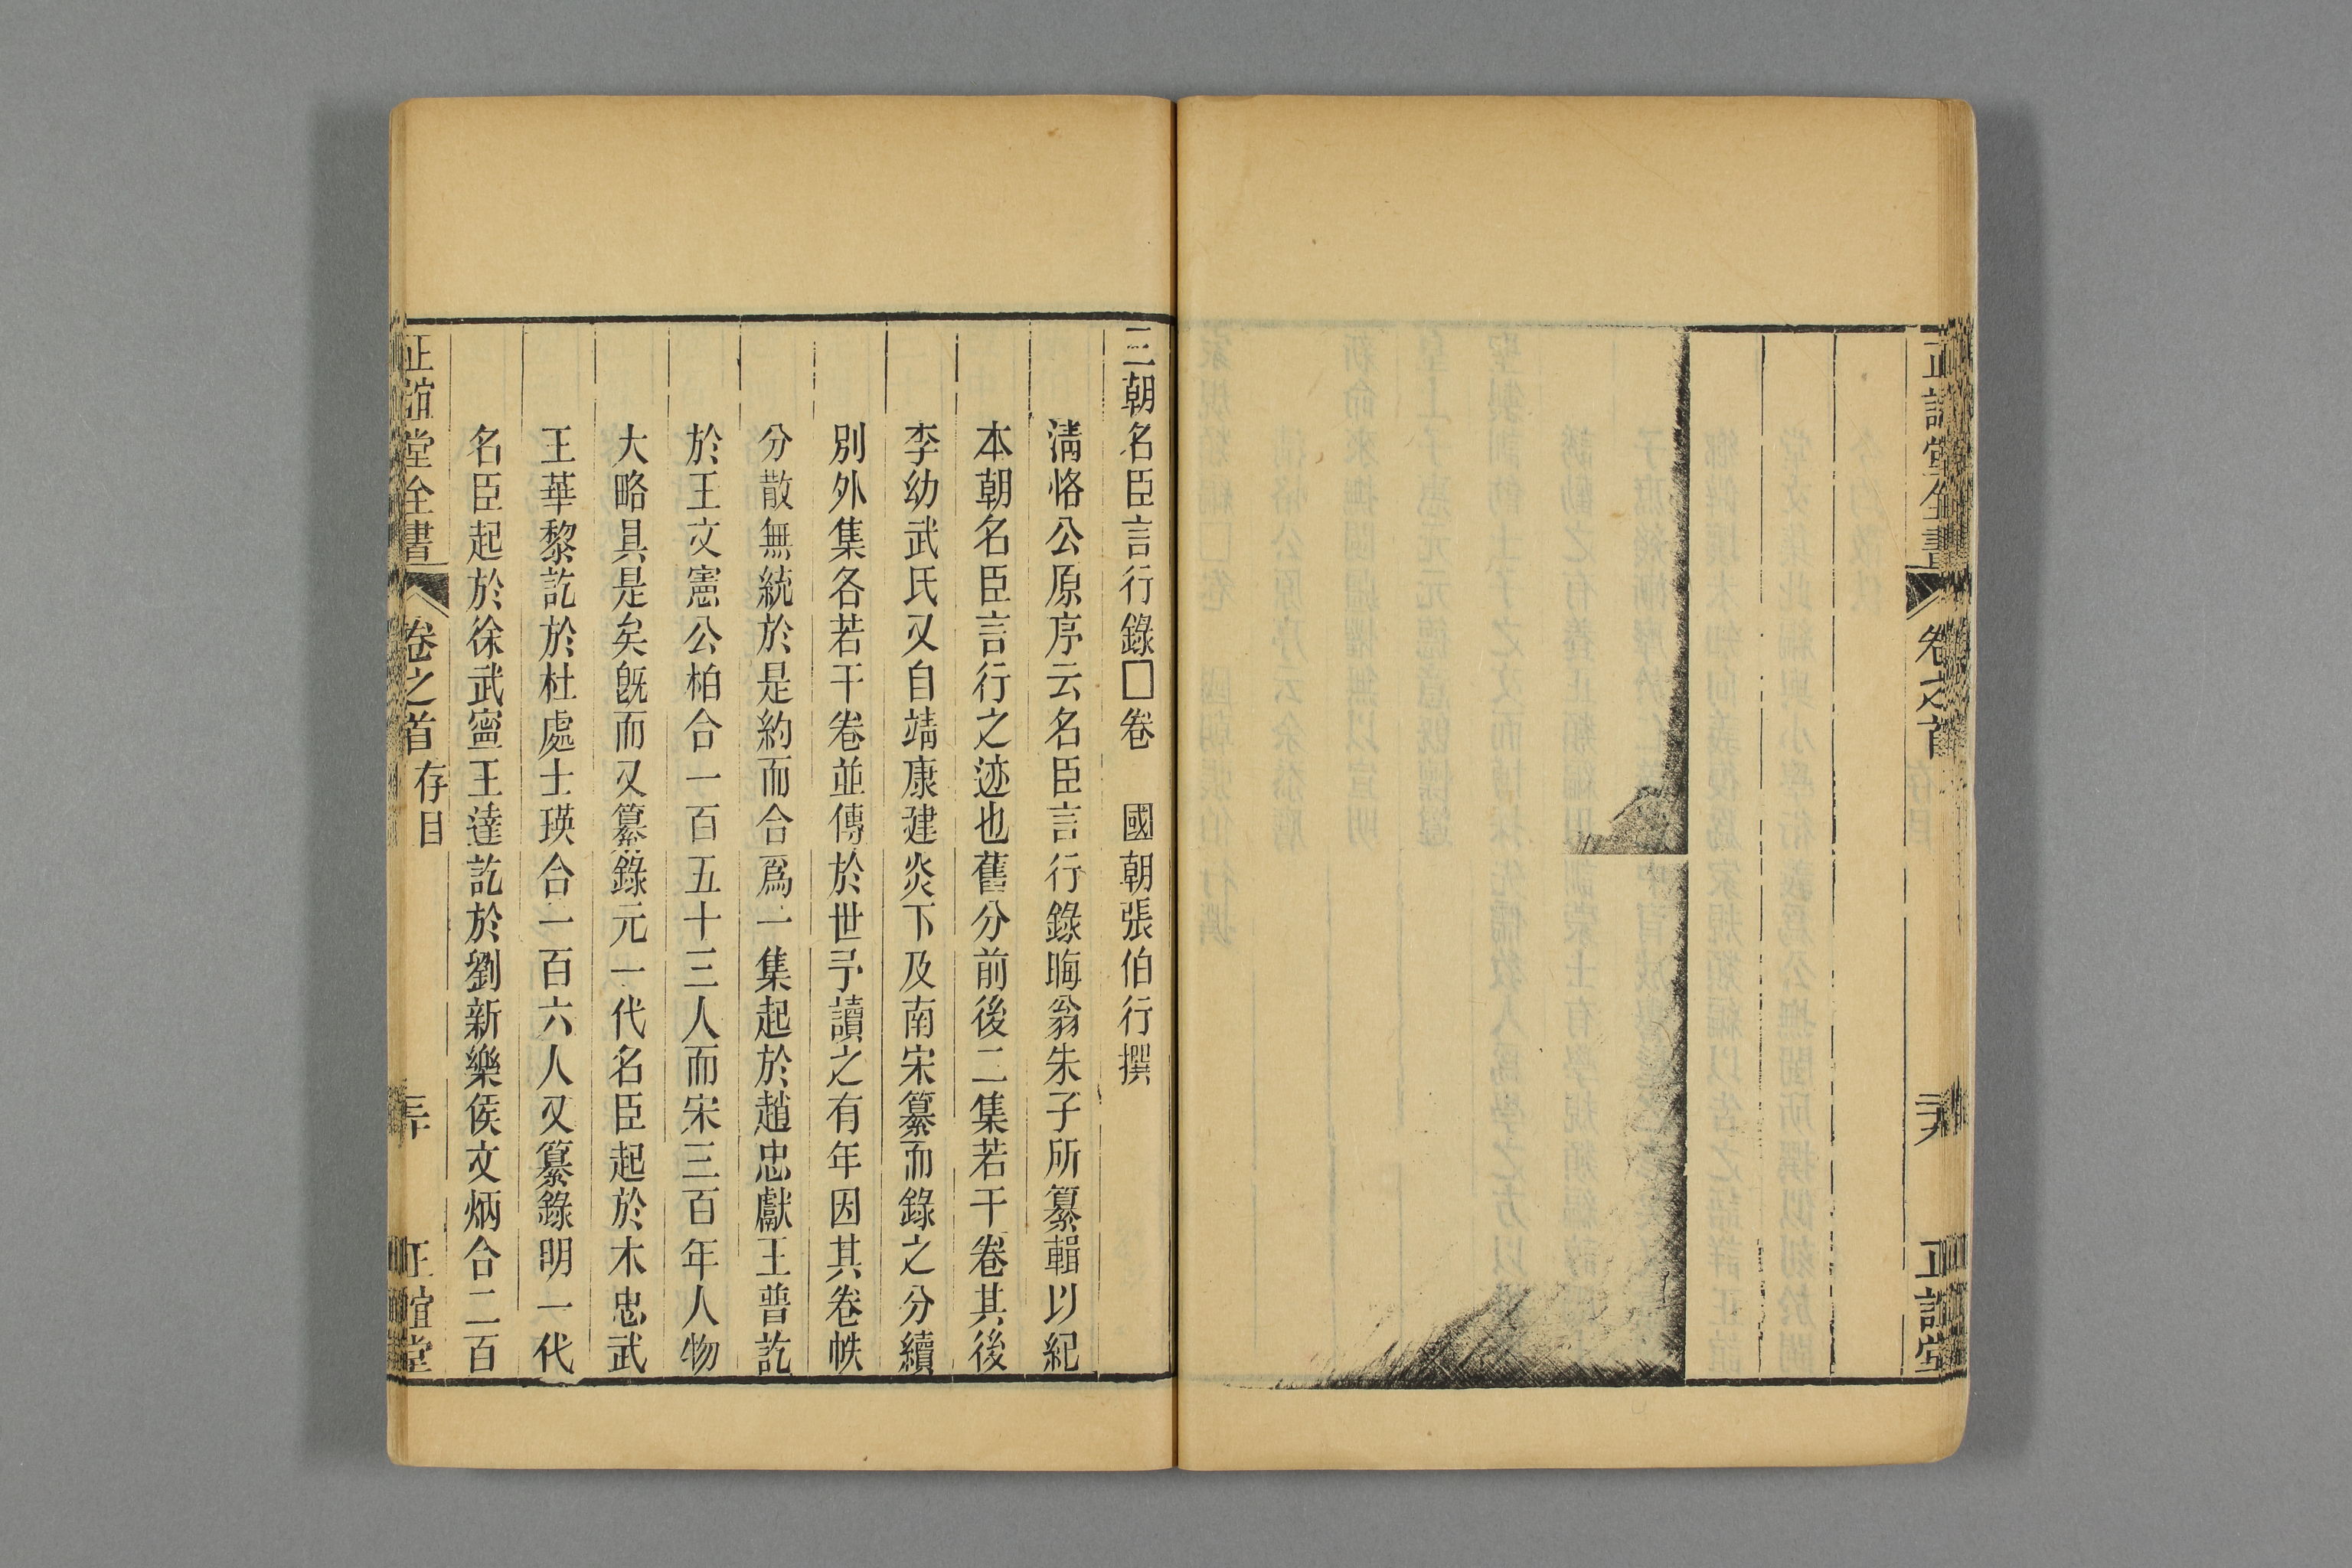 正誼堂全書
卷之首
正誼堂
三朝名臣言行錄□卷　國朝張伯行撰
清恪公原序云名臣言行錄晦翁朱子所纂輯以紀
本朝名臣言行之迹也舊分前後二集若干卷其後
李幼武氏又自靖康建炎下及南宋纂而錄之分續
別外集各若干卷並傳於世予讀之有年因其卷帙
分散無統於是約而合爲一集起於趙忠獻王普訖
於王文憲公柏合一百五十三人而宋三百年人物
大略具是矣既而又纂錄元一代名臣起於木忠武
王華黎訖於杜處士瑛合一百六人又纂錄明一代
名臣起於徐武寧王達訖於劉新樂侯文炳合二百
正誼堂全書
卷之首
存目
正誼堂